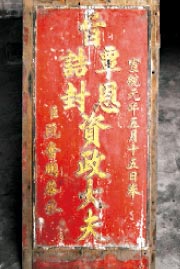 宣統元年五月十五日奉
旨
覃恩
誥封資政大夫
臣